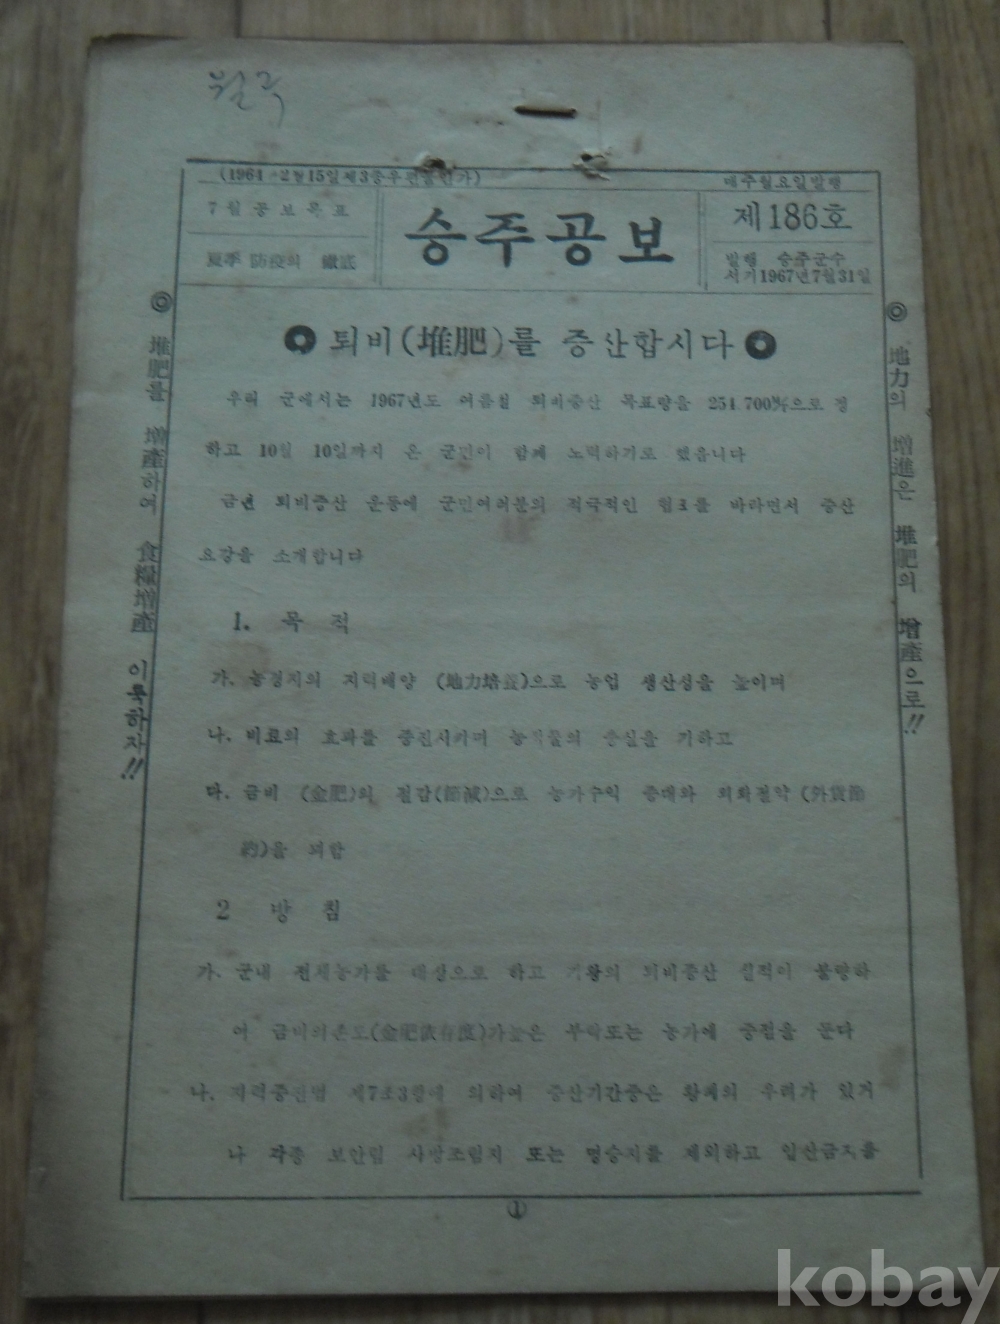 월곡
(1964. 2월15일제3종우편물인가)
7월공보목표
夏季 防疫의 徹底
승주공보
매주월요일발행
제186호
발행 승주군수
서기1967년7월31일
◎ 堆肥를 增產하여 食糧增產 이룩하자!!
◎ 地力의 增進은 堆肥의 增產으로!!
퇴비(堆肥)를 증산합시다
우리 군에서는 1967년도 여름철 퇴비증산 목표량을 254.700%으로 정
하고 10월 10일까지 온 군민이 함께 노력하기로 했읍니다
금년 퇴비증산 운동에 군민여러분의 적극적인 협조를 바라면서 증산
요강을 소개합니다
1. 목적
가. 농경지의 지력배양 (地力培養)으로 농업 생산성을 높이며
나. 비료의 효과를 증진시키며 농작물의 충실을 기하고
다. 금비 (金肥)의 절감(節減)으로 농가수익 증대와 외화절약 (外貨節
約)을 꾀함
2 방침
가. 군내 전체농가를 대상으로 하고 기왕의 퇴비증산 실적이 불량하
여 금비의존도(金肥依存度)가높은 부락또는 농가에 중점을 둔다
나. 지력증진법 제7조3항에 의하여 증산기간중은 황폐의 우려가 있거
나 각종 보안림 사방조림지 또는 명승지를 제외하고 입산금지를
①
kobay